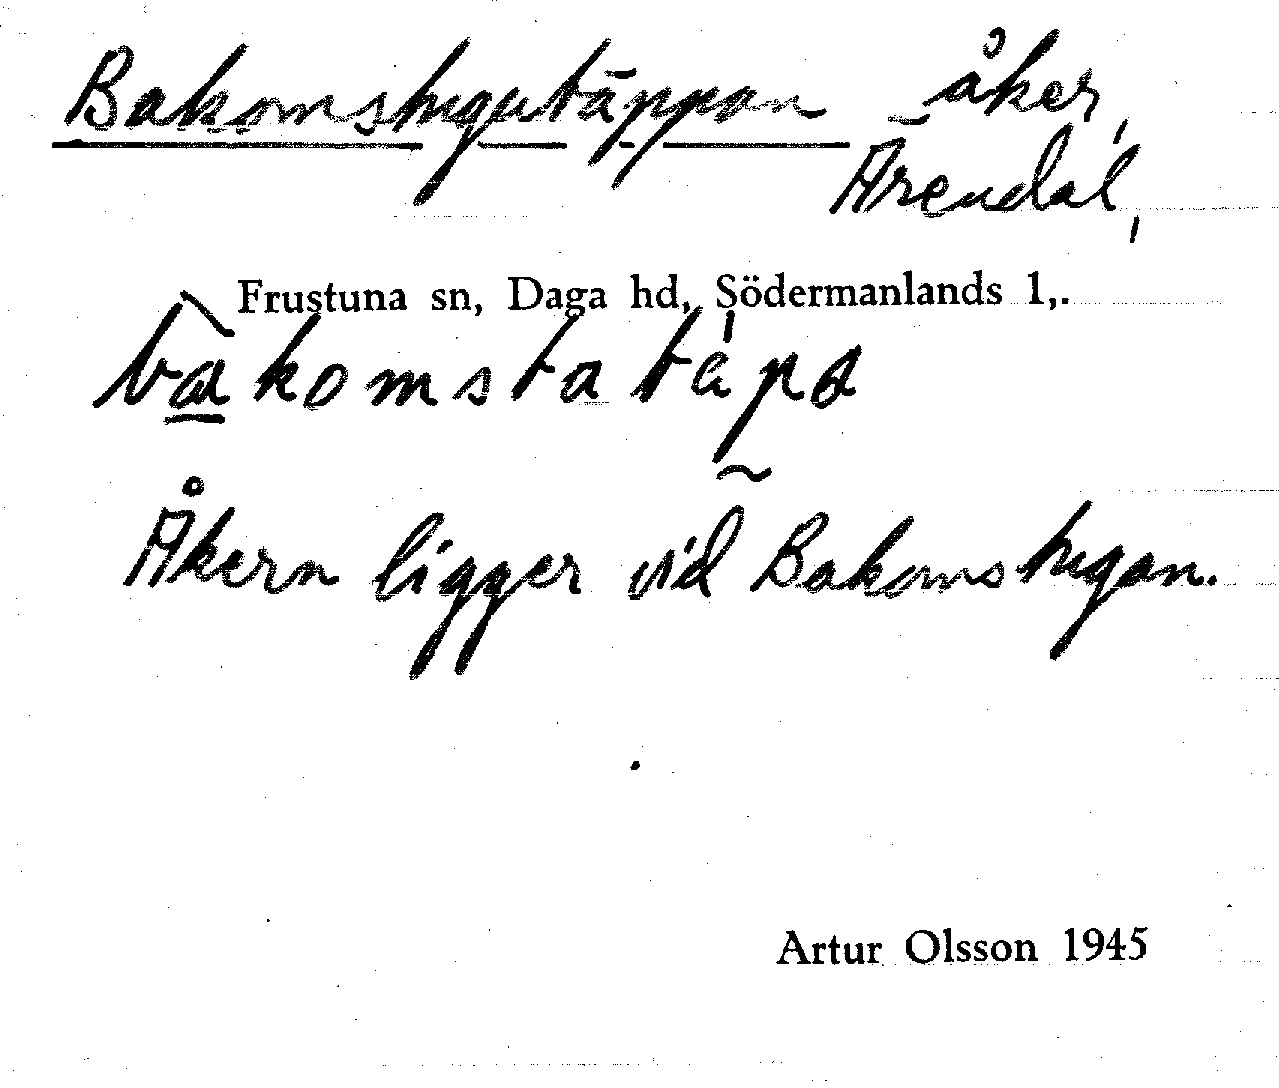 Bakomstugutäppan åker,
Ärendal,
Frustuna sn, Daga hd, Södermanlands l,.
bàkomstatápa
Åkern ligger vid Bakomstugan.
Artur Olsson 1945